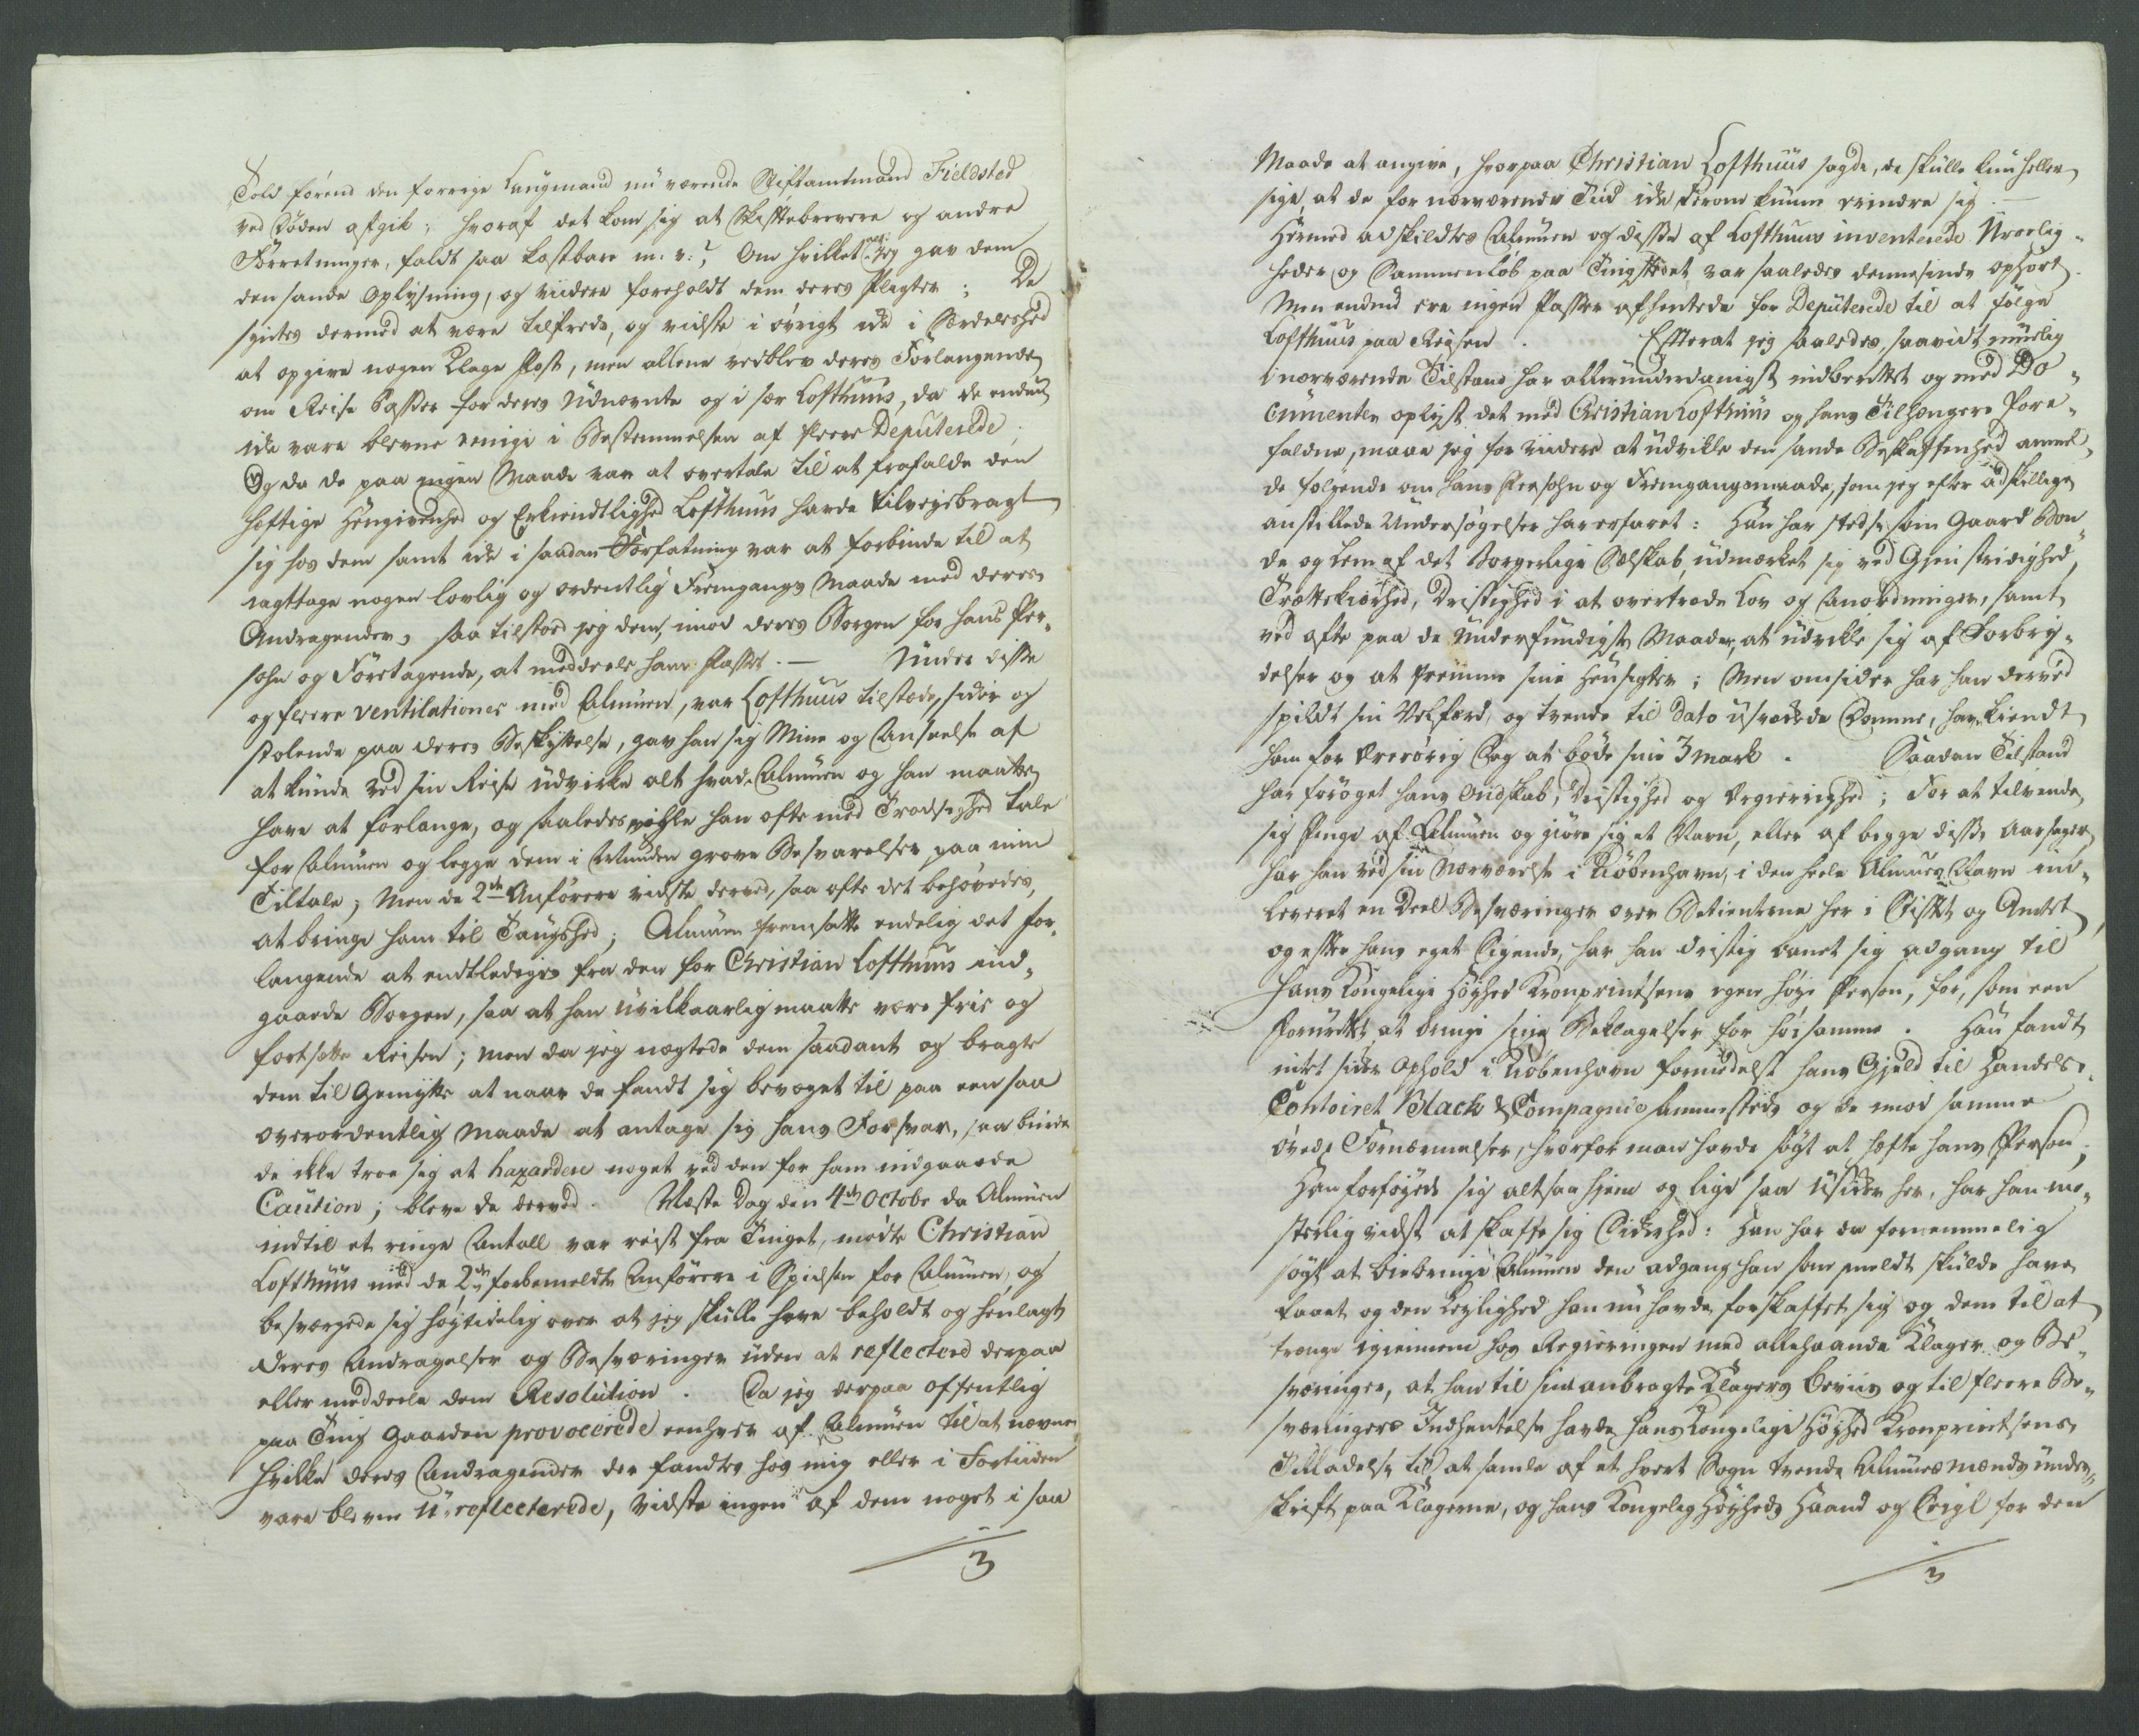 Told förend den forrige Laugmand nu værende Stiftamtmand Fieldsted
ved Döden afgik; hvoraf det kom sig at Skiftebrevene og andre
Forretninger, faldt saa kostbare m: v:, Om hvilket alt jeg gav dem
den sande Oplysning, og viidere foreholdt dem deres Pligter; De
syntes dermed at være tilfreds, og vidste i övrigt ikke i Særdeleshed
at opgive nogen Klage Post, men allene vedblev deres Forlangende
om Reise Passer for deres Udnævnte og i sær Lofthuus, da de endnu
ikke vare blevne eenige i Bestemmelsen af fleere Deputerede;
Og da de paa ingen Maade var at overtale til at frafalde den
heftige Hengivenhed og Erkiendtlighed Lofthuus havde tilveyebragt
sig hos dem samt ikke i saadan Forfatning var at forbinde til at
iagttage nogen lovlig og ordentlig Fremgangs Maade med deres
Andragender, saa tilstod jeg dem, imod deres Borgen for hans Per-
sohn og Foretagende, at meddeele ham Passet. — Under disse
og fleere ventilationer med Almuen, var Lofthuus tilstæde, sikker og
stolende paa deres Beskyttelse, gav han sig Mine og Anseelse af
at kunde ved sin Reise udvirke alt hvad Almuen og han maatte
have at forlange, og saaledes vilde han ofte med Trodsighed tale
for Almuen og legge dem i Munden grove Besvarelser paa min
Tiltale; Men de 2de Anförere vidste derved, saa ofte det behövedes,
at bringe ham til Taushed; Almuen fremsatte endelig det for-
langende at endtlediges fra den for Christian Lofthuus ind-
gaaede Borgen, saa at han uvilkaarlig maatte være frie og
fortsætte Reisen; men da jeg nægtede dem saadant og bragte
dem til Gemytte at naar de fandt sig bevæget til paa een saa
overordentlig Maade at antage sig hans Forsvar, saa burde
de ikke troe sig at hazardere noget ved den for ham indgaaede
Caution; bleve de derved. Næste Dag den 4de Octobr da Almuen
indtil et ringe Antall var reist fra Tinget, mödte Christian
Lofthuus med de 2de forbemeldte Anförere i Spidsen for Almuen, og
besværgede sig höytidelig over at jeg skulle have beholdt og henlagt
deres Andragelser og Besværinger uden at reflectere derpaa
eller meddeele dem Resolution. Da jeg derpaa offentlig
paa Ting Gaarden provocerede eenhver af Almuen til at nævne
hvilke deres Andragender der fandtes hos mig eller i Fortiiden
vare bleven u-reflecterede, vidste ingen af dem noget i saa
3
Maade at angive, hvorpaa Christian Lofthuus sagde, de skulle kun heller
sige at de for nærværende Tiid ikke derom kunne erindre sig. —
Hermed adskildtes Almuen og disse af Lofthuus inventerede Uroelig-
heder og Sammenlöb paa Tingstedet var saaledes dennesinde ophört.
Men endnu ere ingen Passer afhentede for Deputerede til at fölge
Lofthuus paa Reisen. Efterat jeg saaledes, saavidt muelig
i nærværende Tilstand har allerunderdanigst indberettet og med Do-
cumenter oplyst det med Christian Lofthuus og hans Tilhængere fore-
faldne, maae jeg for viidere at udvikle den sande Beskaffenhed anmel-
de fölgende om hans Persohn og Fremgangsmaade, som jeg efter adskillige
anstillede Undersögelser har erfaret: Han har stedse som Gaard Bon-
de og Lem af det Borgerlige Selskab, udmærket sig ved Gjenstridighed,
Trættekierhed, Dristighed i at overtræde Lov og Anordninger, samt
ved ofte paa de underfundigste Maader, at udvikle sig af Forbry-
delser og at fremme sine Hensigter; Men omsider har han derved
spildt sin Velfærd, og tvende til Dato usvækkede Domme, have kiendt
ham for Ærerörig Sag at böde sine 3 mark. Saadan Tilstand
har foröget hans Ondskab, Dristighed og Ærgierrighed; For at tilvende
sig Penge af Almuen og giöre sig et Navn, eller af begge disse Aarsager
har han ved sin Nærværelse i Kiöbenhavn, i den heele Almues Navn ind-
leveret en Deel Besværinger over Betienterne her i Stiftet og Amtet,
og efter hans eget Sigende, har han dristig banet sig adgang til
Hans Kongelige Höyhed Kronprintsens egen höye Person, for, som een
forurettet at bringe sine Beklagelser for höisamme. Han fandt
intet sikker Ophold i Kiöbenhavn formedelst hans Gjæld til Handels-
Contoiret Black & Compagnie sammesteds og de imod samme
övede Fornærmelser, hvorfor man havde sögt at hefte hans Person;
Han forföyede sig altsaa hjem og lige saa usikker her, har han me-
sterlig vidst at skaffe sig Sikkerhed: Han har da fornemmelig
sögt at biebringe Almuen den adgang han som meldt skulde have
faaet og den Leylighed han nu havde forskaffet sig og dem til at
trænge igiennem hos Regieringen med allehaande Klager og Be-
sværinger, at han til sine anbragte Klagers Beviis og til fleere Be-
sværingers Indhentelse havde Hans Kongelige Höyhed Kronprintsens
Tilladelse til at samle af et hvert Sogn tvende Almuesmænds under-
skrift paa Klagerne, og Hans Kongelig Höyheds Haand og Seigl for den
3